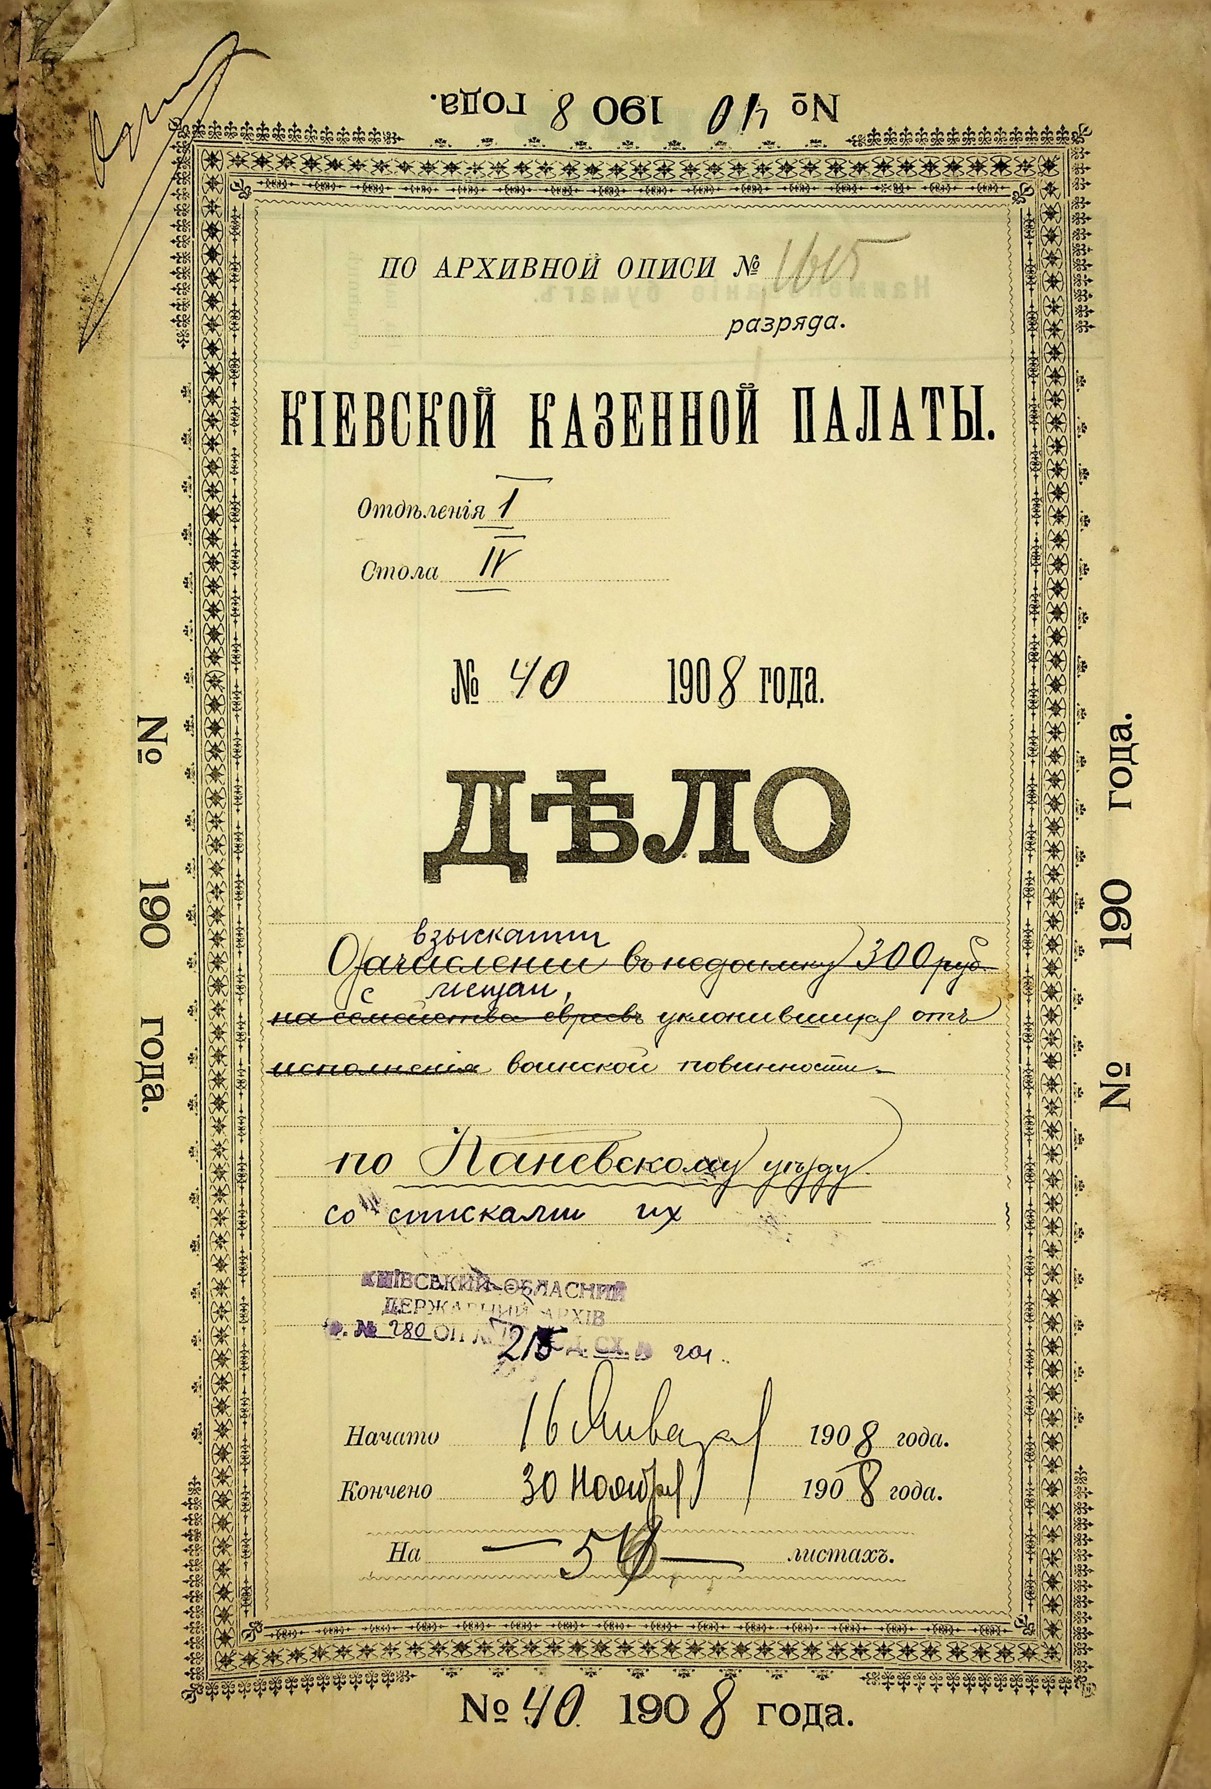 № 40 1908 года.
ПО АРХИВНОЙ ОПИСИ № 1615
разряда.
КІЕВСКОЙ КАЗЕННОЙ ПАЛАТЫ.
Отдѣленія I
Стола IV
№ 40 1908 года.
ДѢЛО
взыскании
О зачислении въ недоимку 300 руб.
с мещан,
на семейства евреевъ уклонившихся отъ
исполненія воинской повинности
по Каневскому уѣзду
со списками их
КИЇВСЬКИЙ ОБЛАСНИЙ
ДЕРЖАВНИЙ АРХІВ
Ф. № 280 ОП 215 ОД. СХ.
Начато 16 Января 1908 года.
Кончено 30 Ноября 1908 года.
На листахъ.
№ 40 1908 года.
№ 190 года.
№ 190 года.